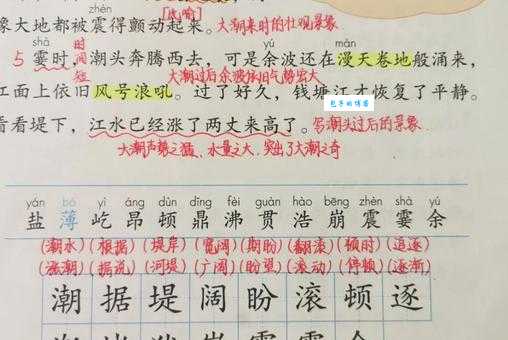 zhèn
[比喻]
像大地都被震得颤动起来。大潮来时的壮观景象
shà yú màn
5 霎时,潮头奔腾西去,可是余波还在漫天卷地般涌来,
时间短
大潮过后余波依旧气势出大
江面上依旧风号浪吼。过了好久,钱塘江才恢复了平静。
包子的博客
看看堤下,江水已经涨了两丈来高了。写潮头过后的景象
大潮声势之猛、水量之大,突出了大潮之奇
yán bó yì áng dùn dǐng fèi guàn hào bēng zhèn shà yú
盐 薄 屹 昂 顿 鼎 沸 贯 浩 崩 震 霎 余
(潮水)(根据)(堤岸)(宽阔)(期盼)(翻滚)(顿时)(追逐)
(涨潮)(据说)(河堤)(广阔)(盼望)(滚动)(停顿)(逐渐)
潮 据 堤 阔 盼 滚 顿 逐